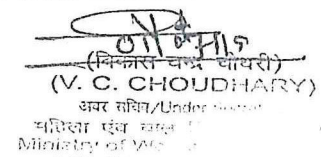 (विकास चन्द्र चौधरी)
(V. C. CHOUDHARY)
अवर सचिव/Under
महिला एंव बाल
Ministry of